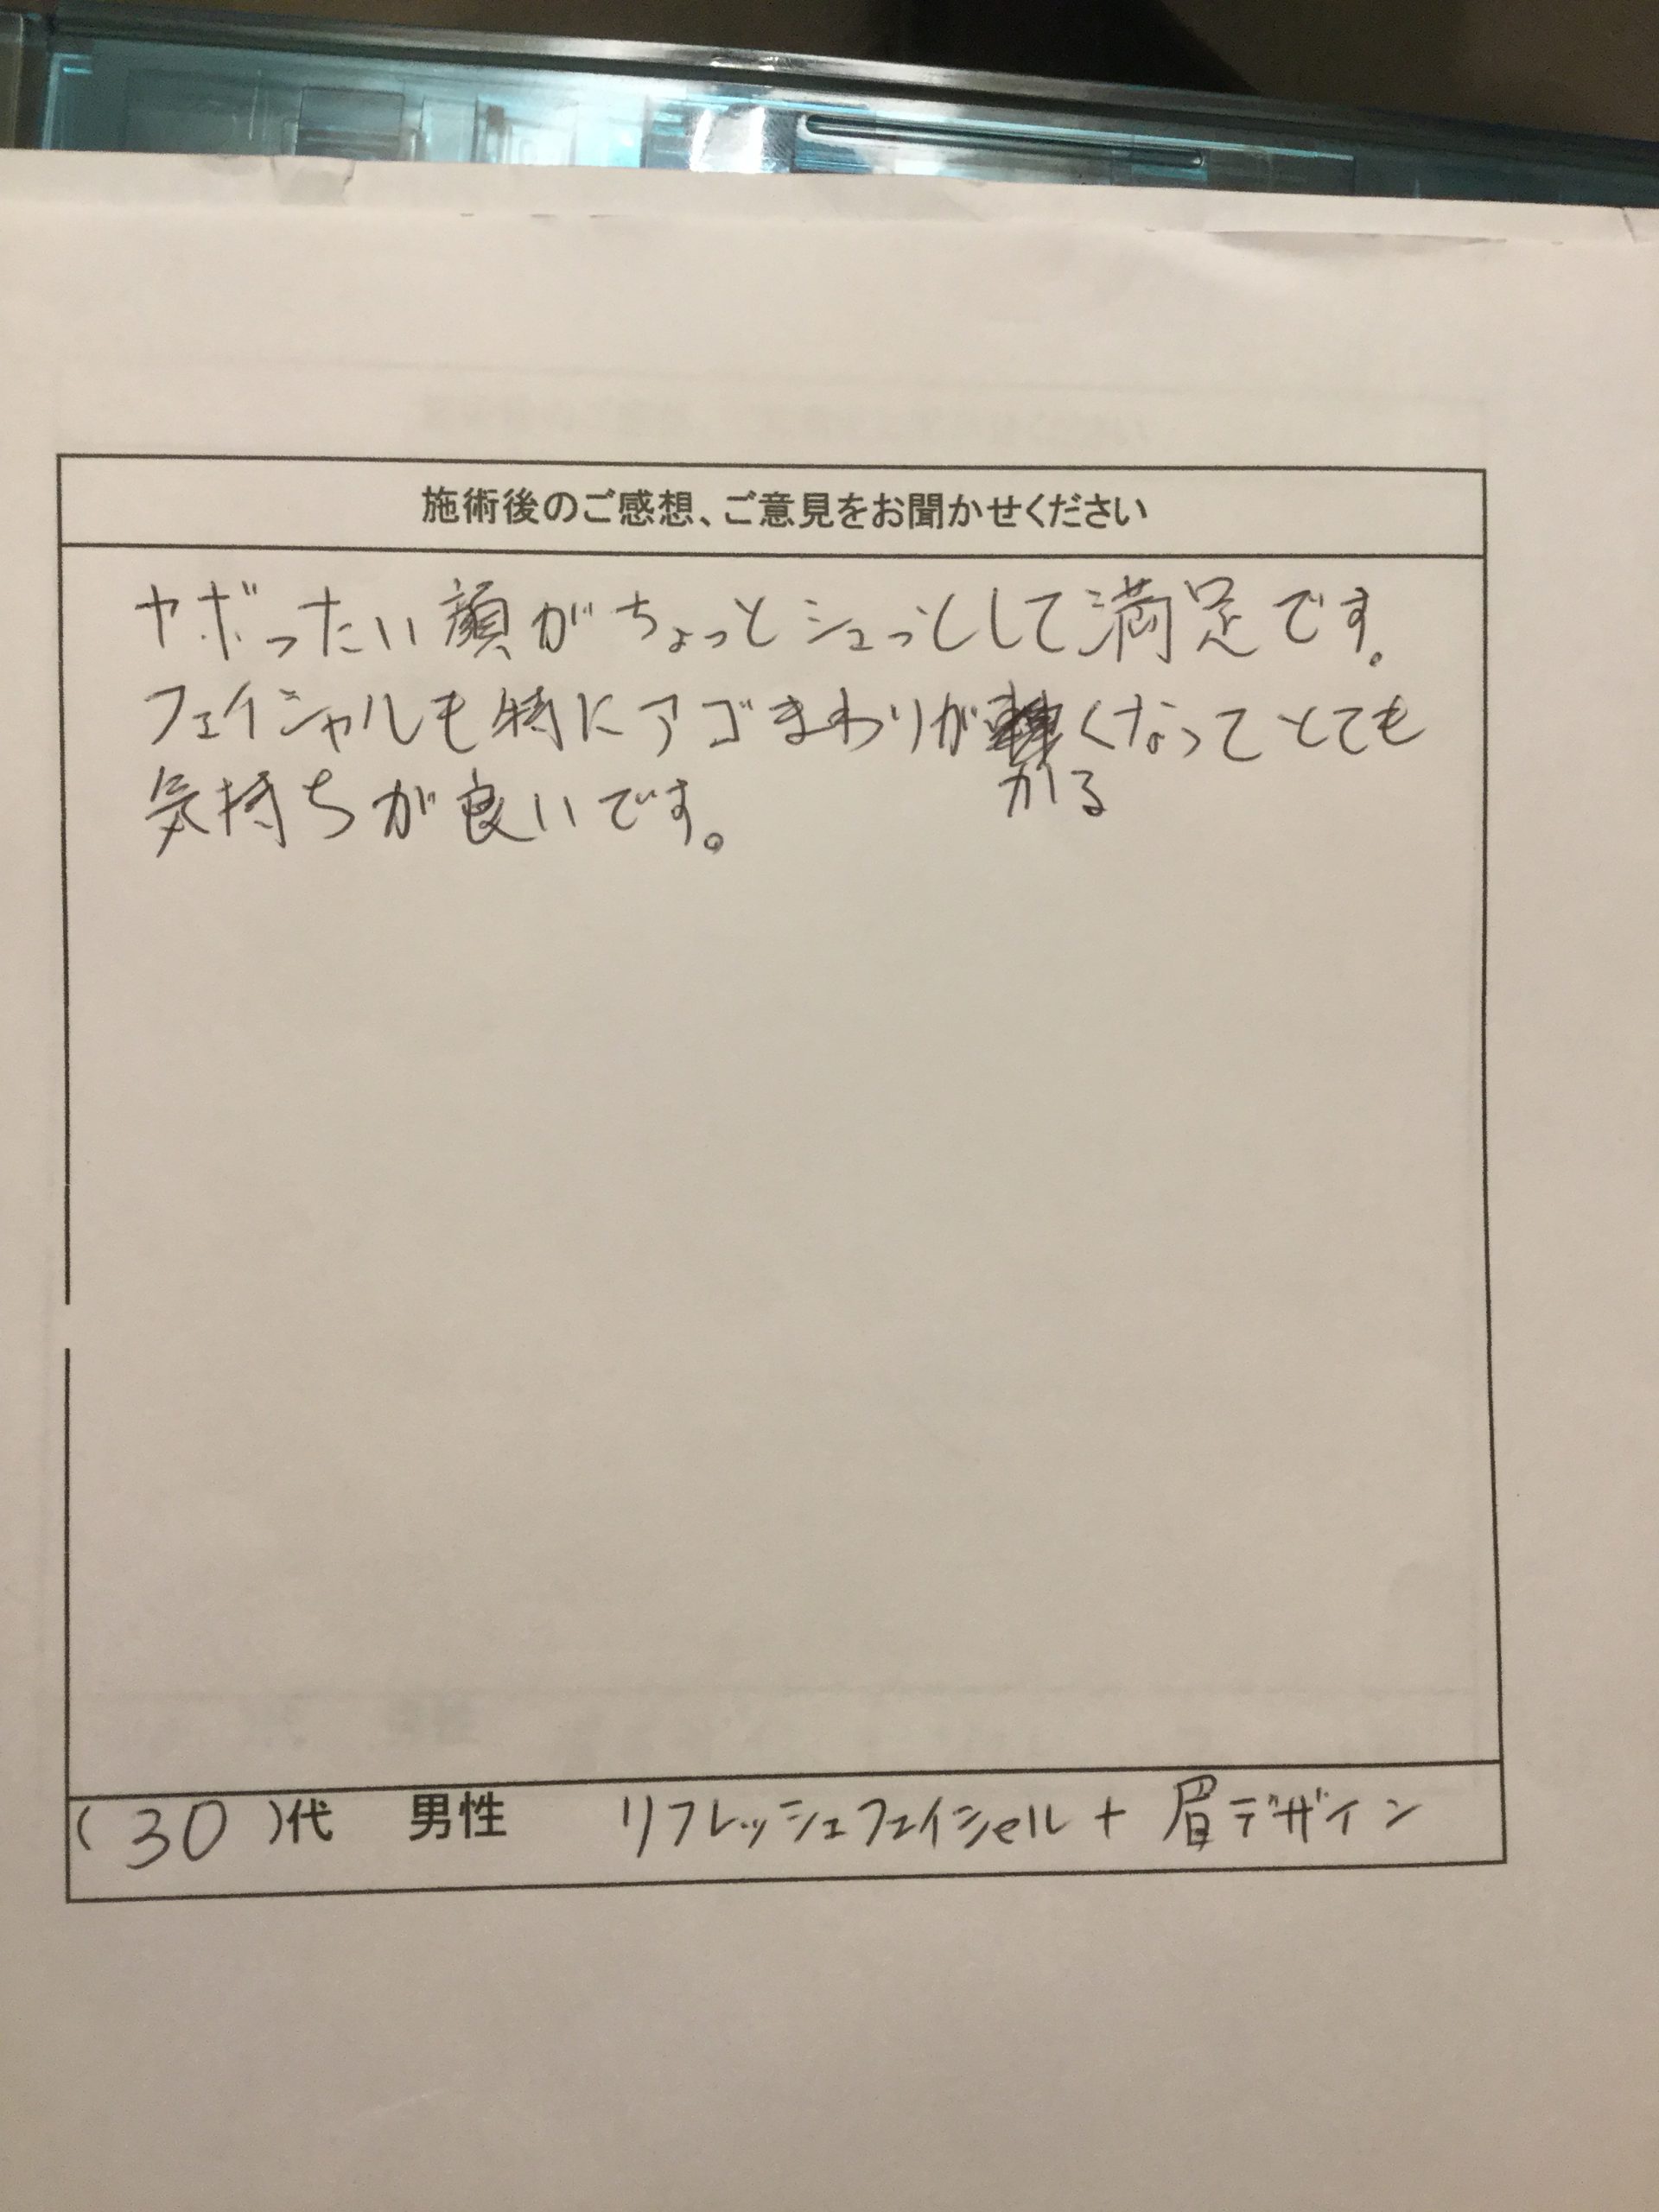 施術後のご感想、ご意見をお聞かせください
ヤボったい顔がちょっとシュっとして満足です。
フェイシャルも特にアゴまわりがかるくなってとても
気持ちが良いです。
(30)代 男性 リフレッシュフェイシャル+眉デザイン